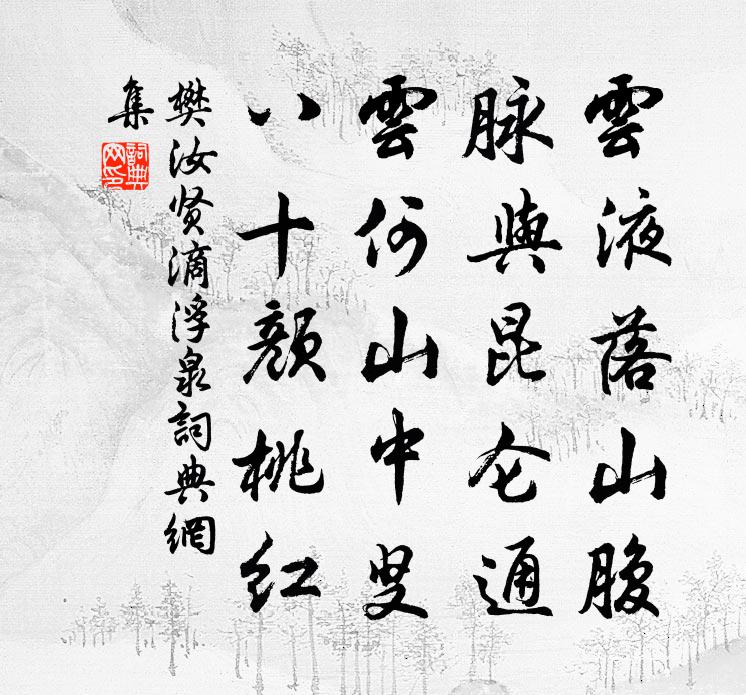 雲液落山腹
脉與昆仑通
雲何山中叟
八十颜桃红
樊汝贤滴浮泉詞典網
集
詞典
网印